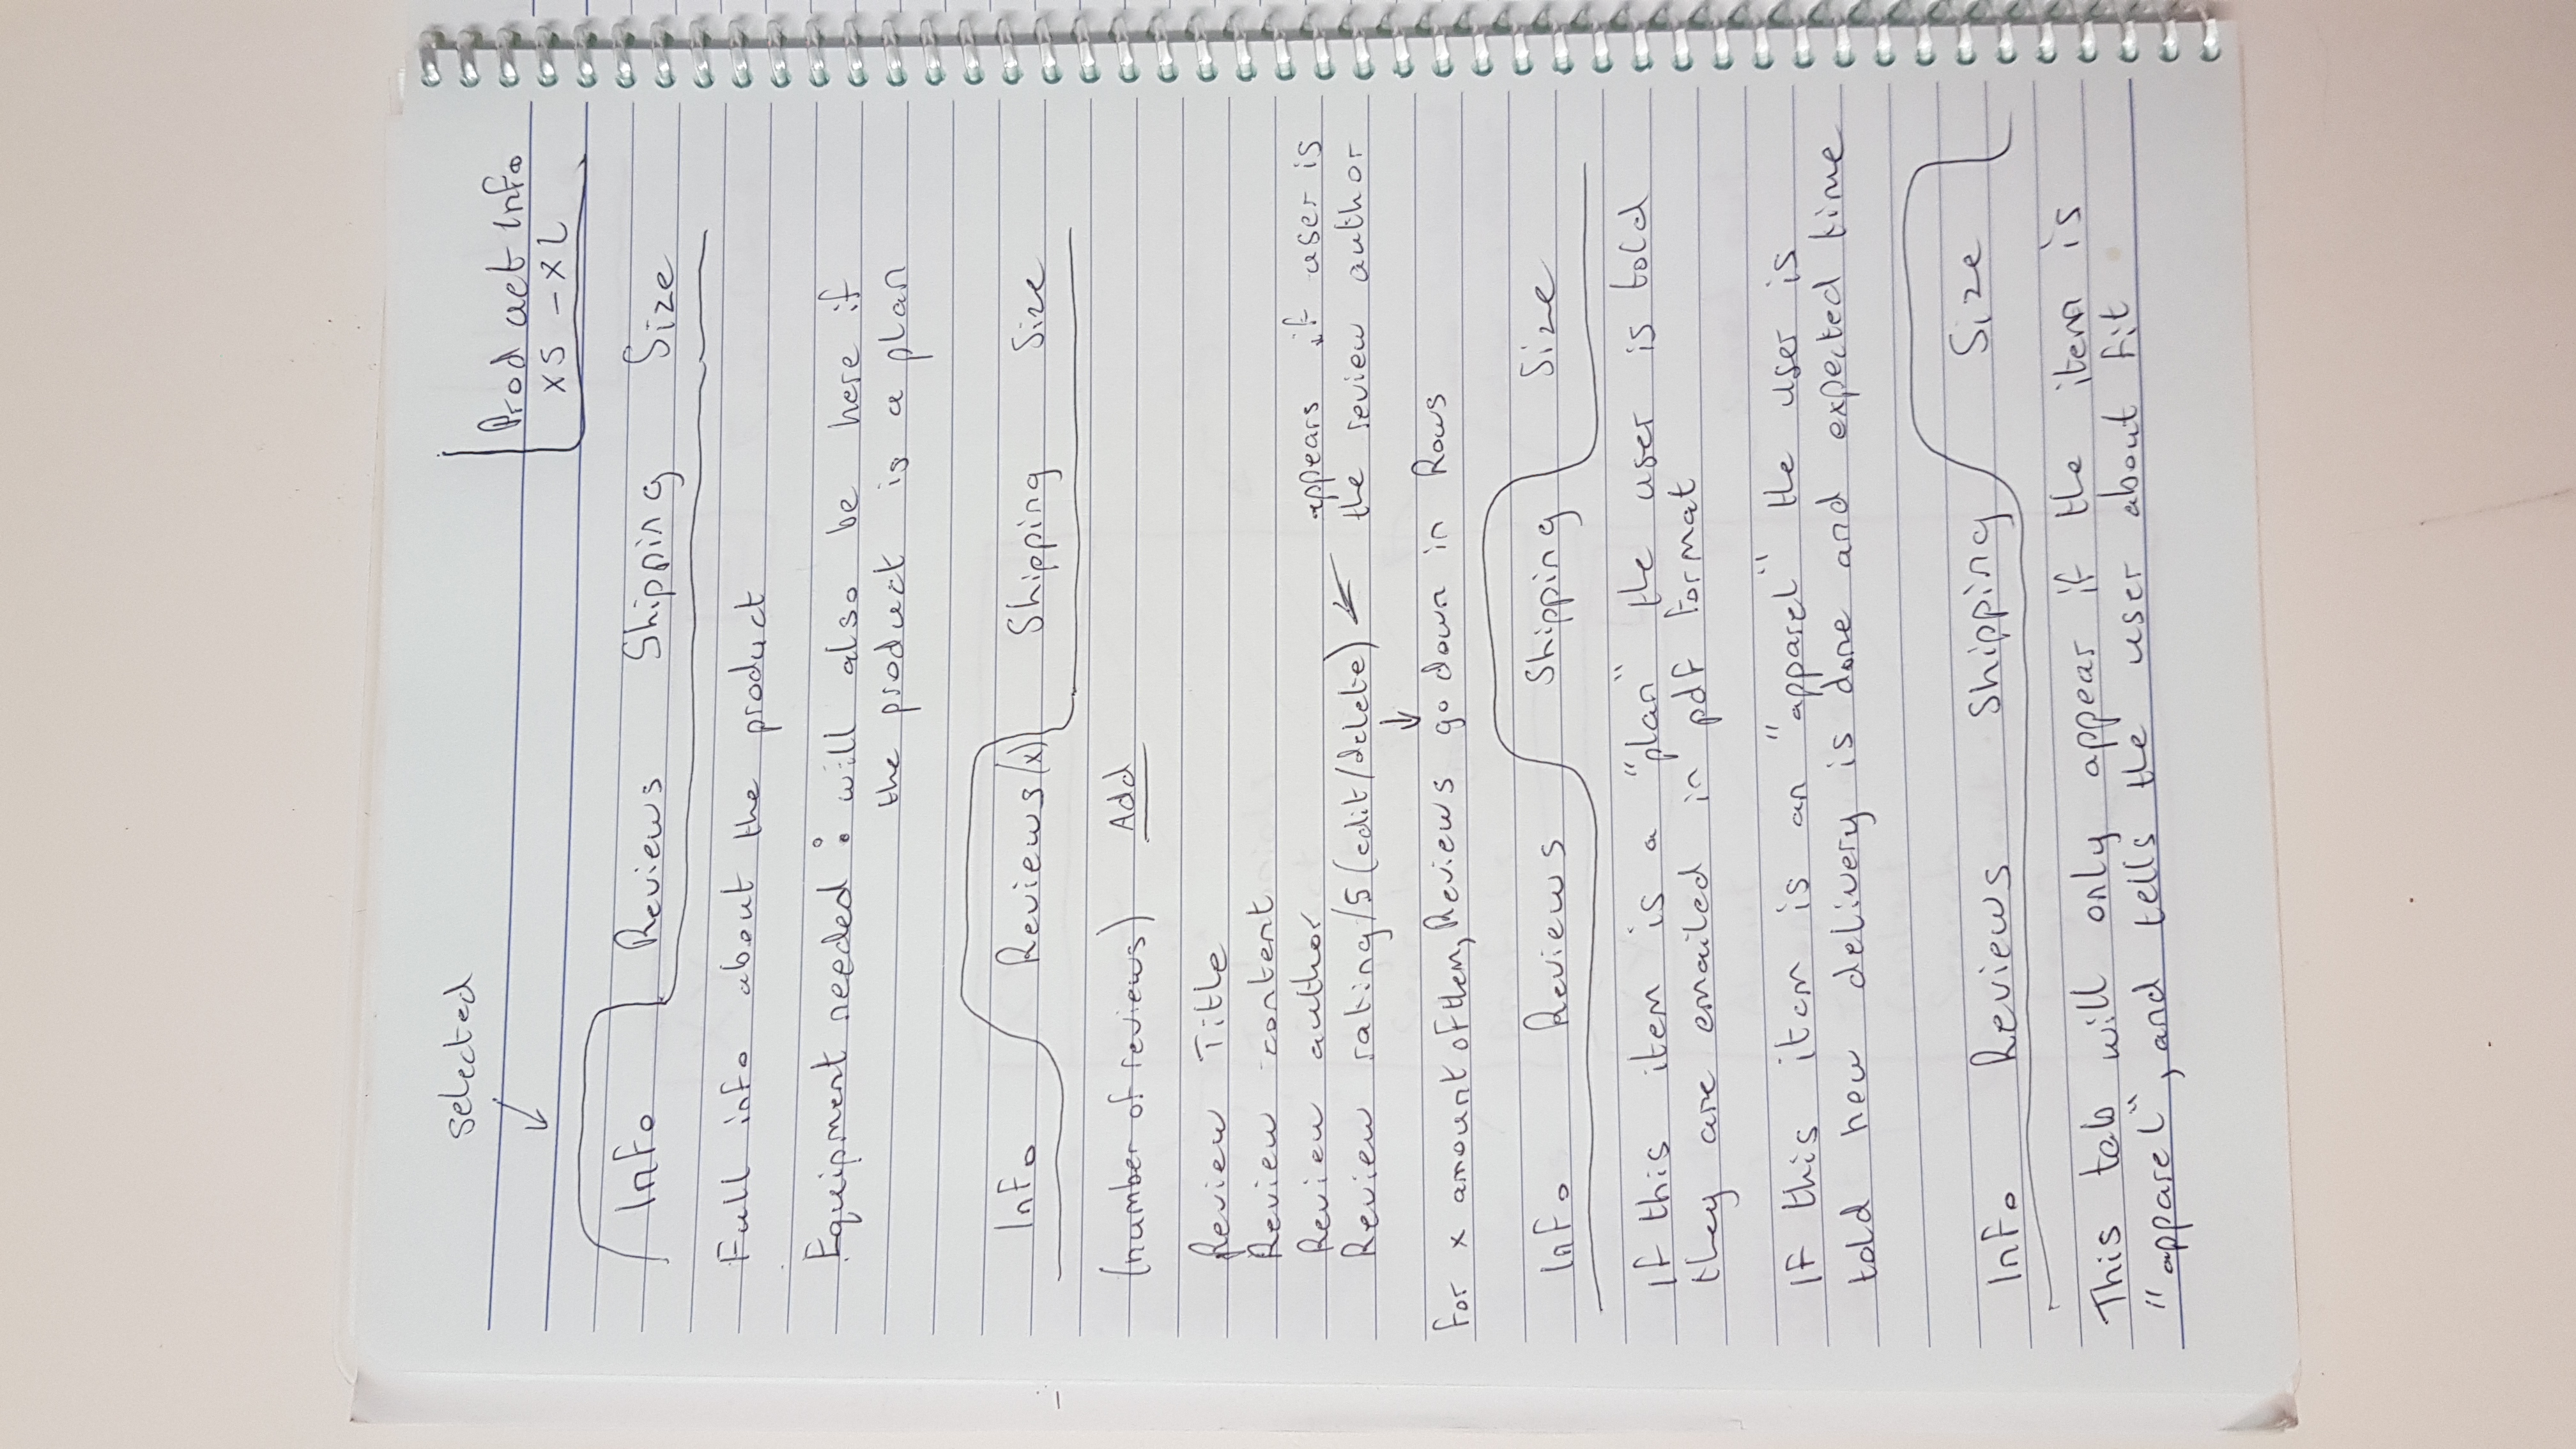 selected
Product Info
XS - XL
Info Reviews Shipping Size
Full info about the product
Equipment needed : will also be here if
the product is a plan
Info Reviews (x) Shipping Size
(number of reviews) Add
Review Title
Review content
Review author
appears if user is
Review rating/5 (edit/delete)
the review author
For x amount of them, Reviews go down in Rows
Info Reviews Shipping Size
If this item is a "plan" the user is told
they are emailed in pdf format
If this item is an "apparel" the user is
told how delivery is done and expected time
Info Reviews Shipping Size
This tab will only appear if the item is
"apparel", and tells the user about fit